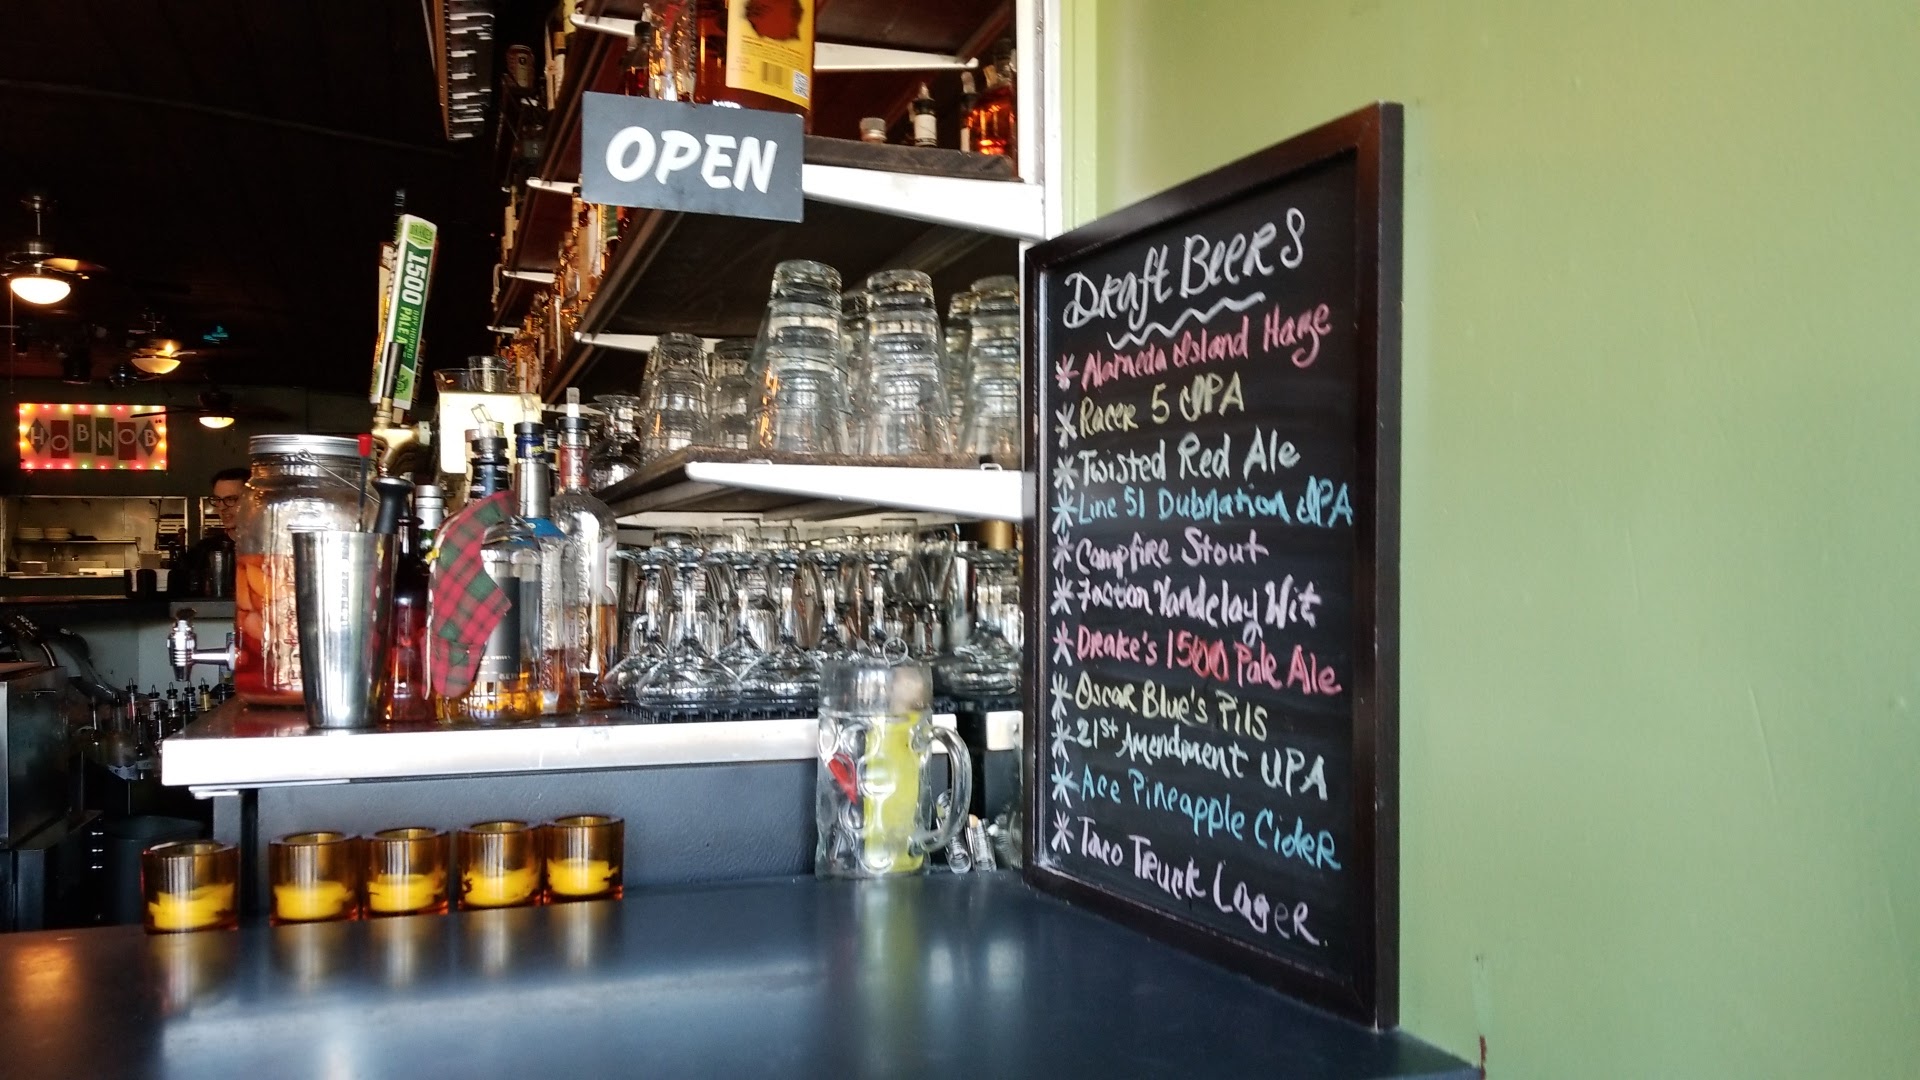 OPEN
1500 PALE A
DRY HOPPED
HOBNOB
Draft Beers
* Alameda Island Haze
* Racer 5 IPA
* Twisted Red Ale
* Line 51 Dubnation IPA
* Campfire Stout
* Faction Vandelay Wit
* Drake's 1500 Pale Ale
* Oscar Blue's Pils
* 21st Amendment IPA
* Ace Pineapple Cider
* Taco Truck Lager.